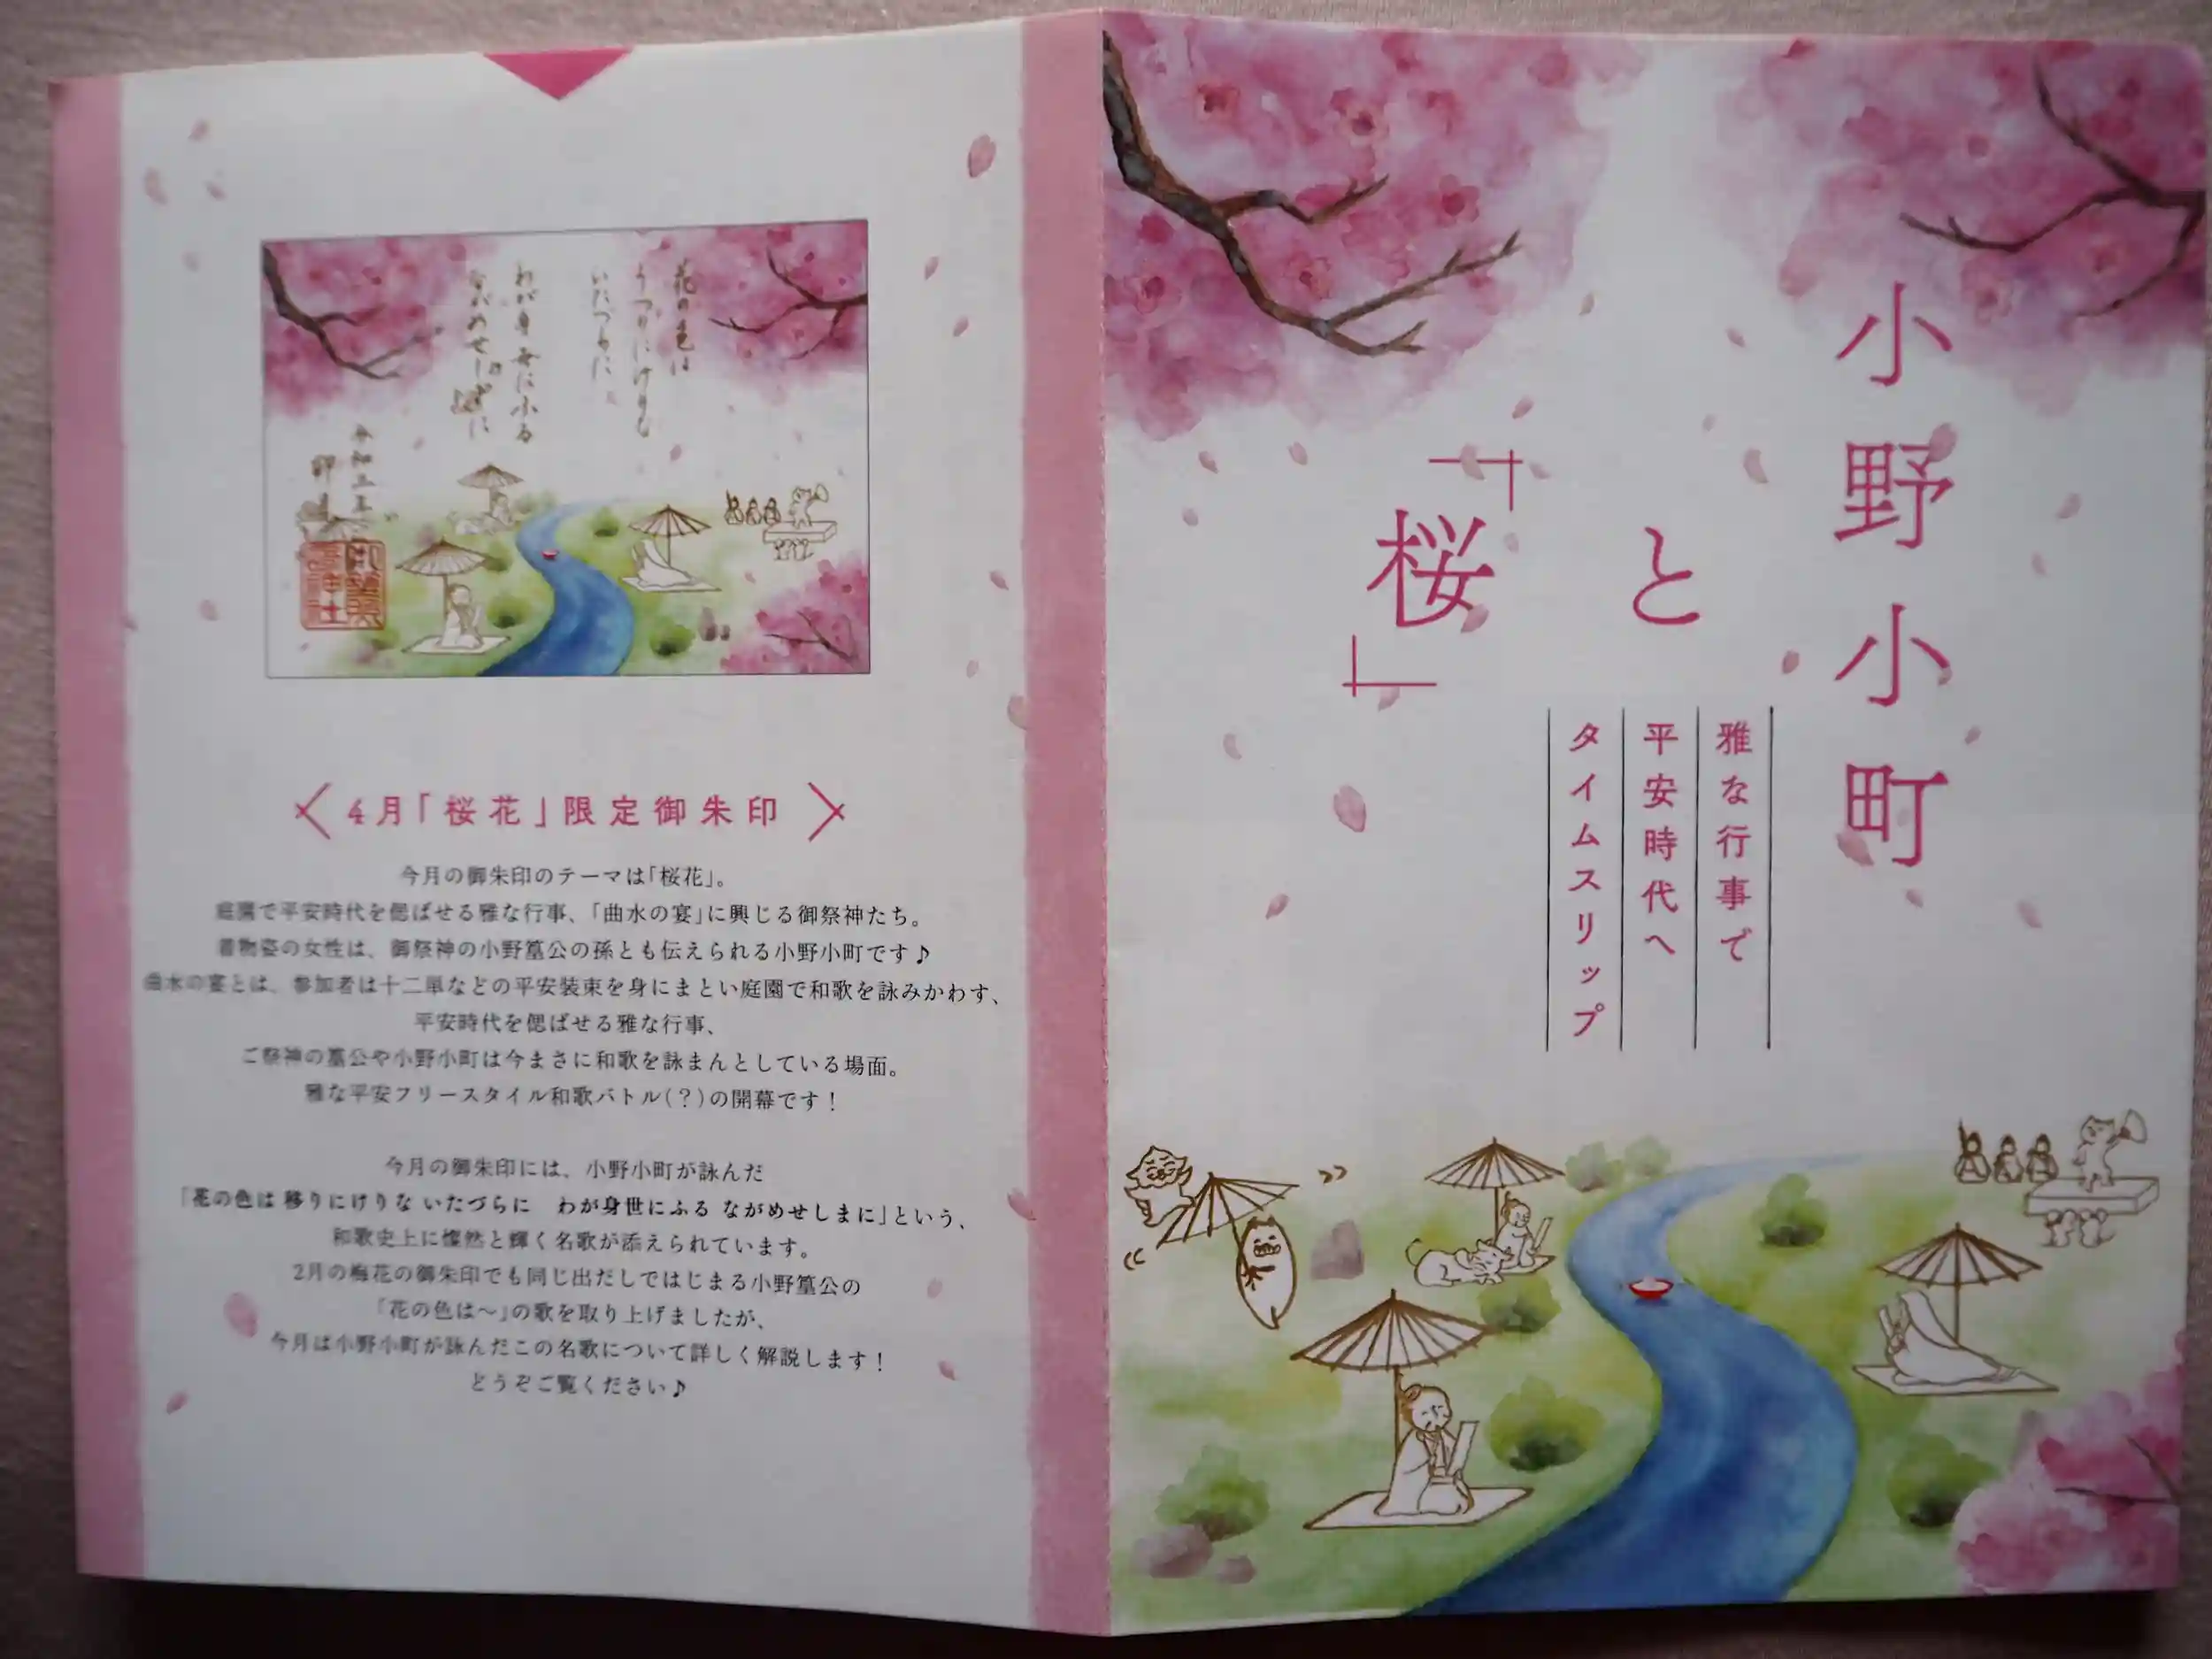 小野小町
と
「桜」
雅な行事で
平安時代へ
タイムスリップ
花の色は
うつりにけりな
いたつらに
わが身世にふる
ながめせしまに
4月「桜花」限定御朱印
今月の御朱印のテーマは「桜花」。
庭園で平安時代を偲ばせる雅な行事、「曲水の宴」に興じる御祭神たち。
着物姿の女性は、御祭神の小野篁公の孫とも伝えられる小野小町です♪
曲水の宴とは、参加者は十二単などの平安装束を身にまとい庭園で和歌を詠みかわす、
平安時代を偲ばせる雅な行事、
ご祭神の篁公や小野小町は今まさに和歌を詠まんとしている場面。
雅な平安フリースタイル和歌バトル(?)の開幕です!
今月の御朱印には、小野小町が詠んだ
「花の色は 移りにけりな いたづらに　わが身世にふる ながめせしまに」という、
和歌史上に燦然と輝く名歌が添えられています。
2月の梅花の御朱印でも同じ出だしではじまる小野篁公の
「花の色は〜」の歌を取り上げましたが、
今月は小野小町が詠んだこの名歌について詳しく解説します!
どうぞご覧ください♪